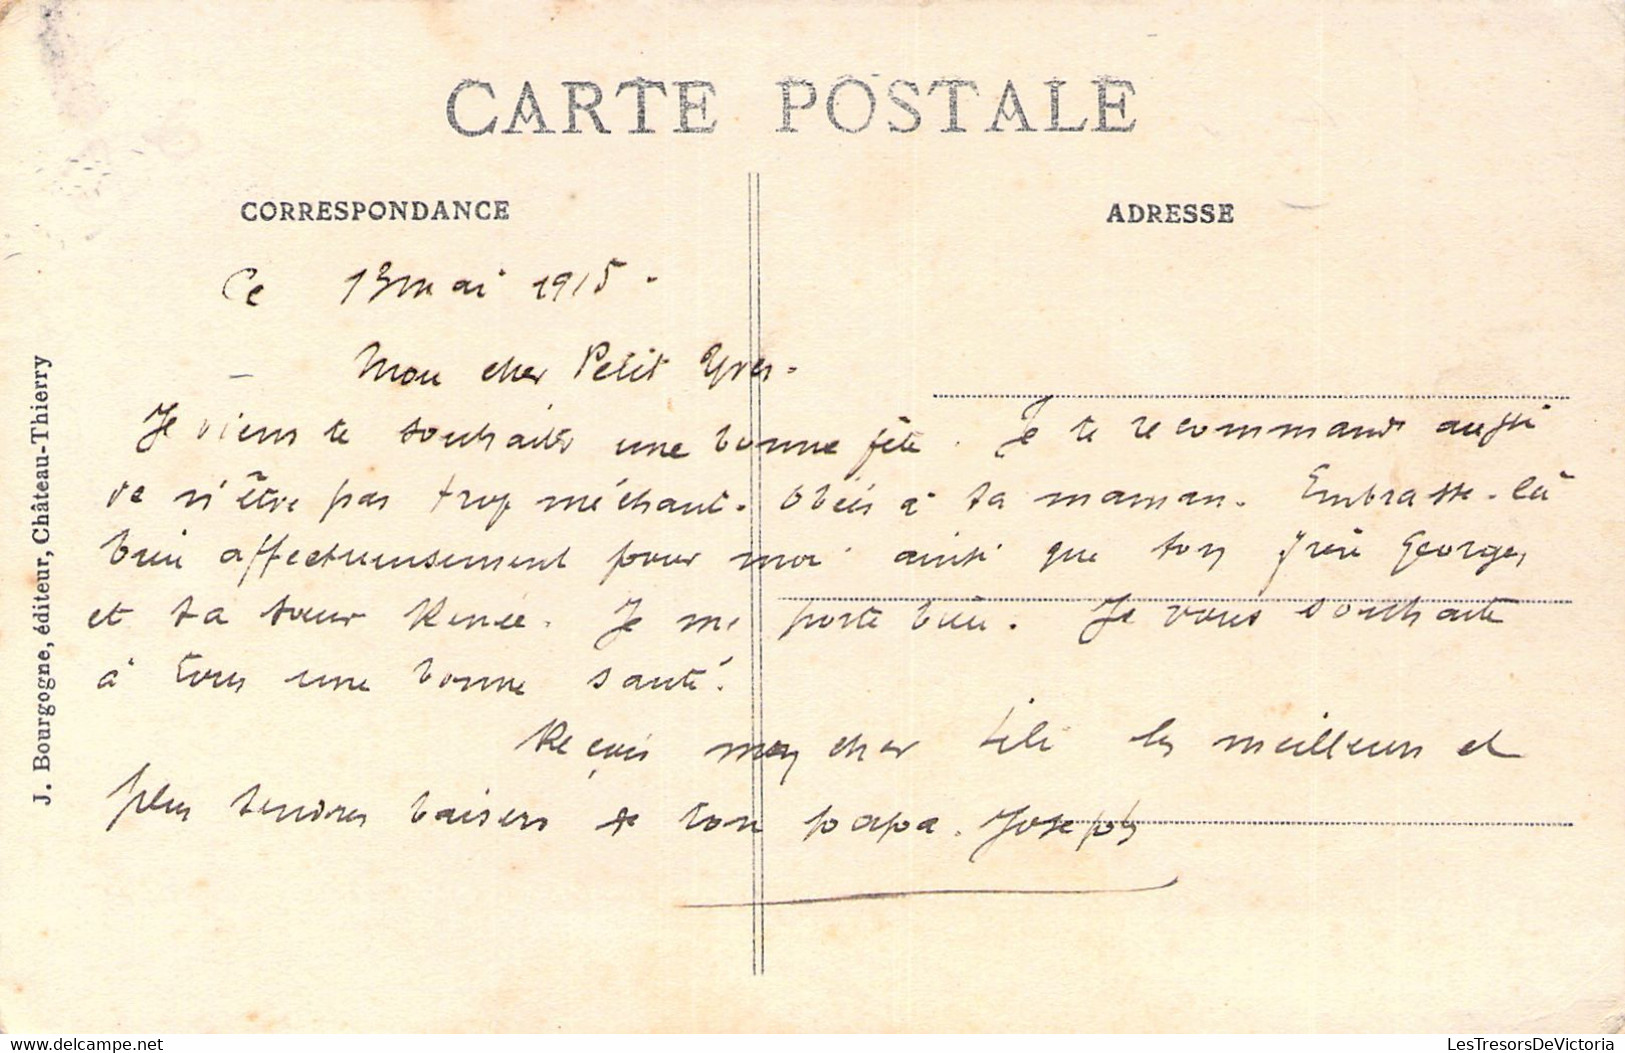 CARTE POSTALE
CORRESPONDANCE
ADRESSE
Ce 13 mai 1915.
Mon cher Petit Yves.
Je viens te souhaiter une bonne fête. Je te recommande aussi
de n'être pas trop méchant. Obéis à ta maman. Embrasse-là
bien affectueusement pour moi ainsi que ton frère Georges,
et ta sœur Renée. Je me porte bien. Je vous souhaite
à tous une bonne santé.
Reçois mon cher les meilleurs et
plus tendres baisers de ton papa. Joseph
J. Bourgogne, éditeur, Château-Thierry
LesTresorsDeVictoria
https://www.delcampe.net